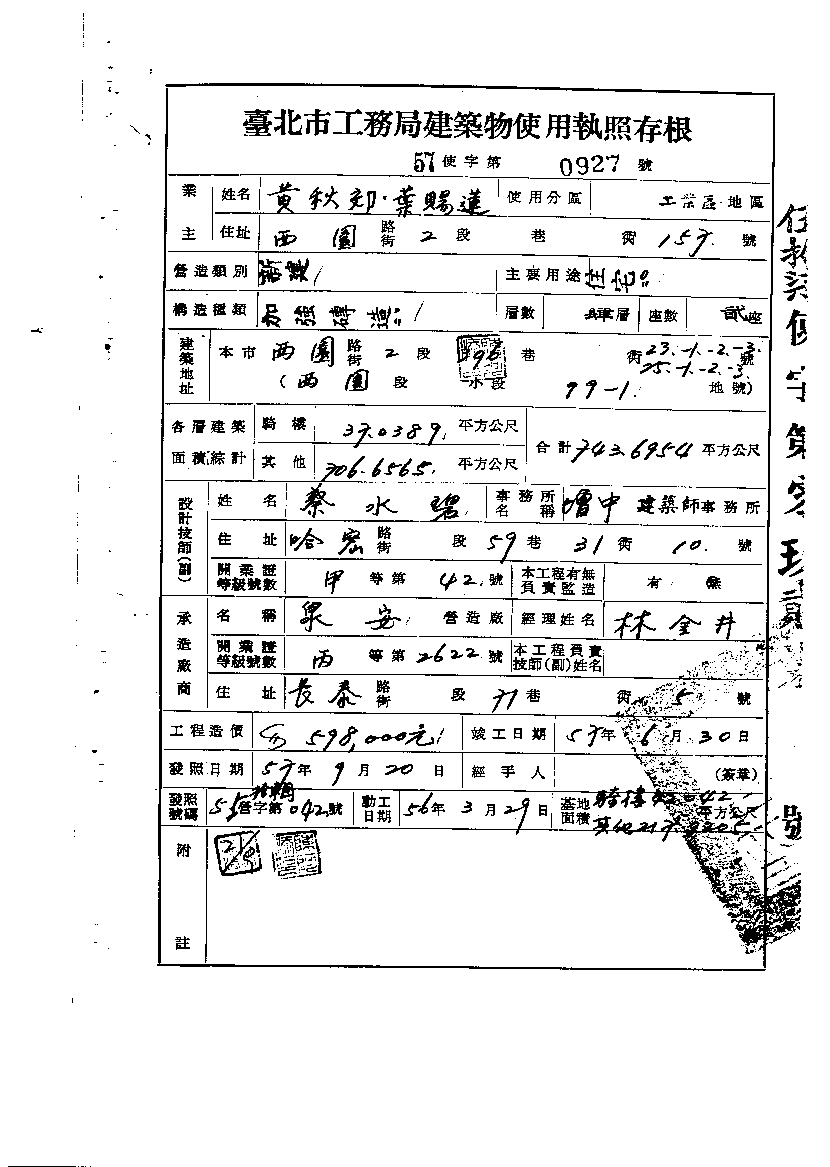 臺北市工務局建築物使用執照存根
57使字第 0927 號
業主 姓名 黃秋郊·葉賜蓮 使用分區 工業區地區
住址 西園路街 2 段 巷 衖 157 號
營造類別 新建 主要用途 住宅
構造種類 加強磚造 層數 肆層 座數 貳座
建築地址 本市 西園路街 2 段 巷 衖 23.-1.-2.-3. 25.-1.-2.-3. 號
(西園段 小段 99-1. 地號)
各層建築面積綜計 騎樓 37.0389 平方公尺 合計 743.6954 平方公尺
其他 706.6565. 平方公尺
設計技師(副) 姓名 蔡水碧 事務所名稱 建築師事務所
住址 哈密路街 段 59 巷 31 衖 10. 號
開業證等級號數 甲等第 42. 號 本工程有無負責監造 有 無
承造廠商 名稱 泉安 營造廠 經理姓名 林金井
開業證等級號數 丙等第 2622 號 本工程負責技師(副)姓名
住址 長泰路街 段 71 巷 衖 5 號
工程造價 598,000元 竣工日期 57年 6月 30日
發照日期 57年 9月 20日 經手人 (簽章)
發照號碼 55營字第 042 號 動工日期 56年 3月 29日 基地面積 騎樓 42.042 平方公尺
其他
附註